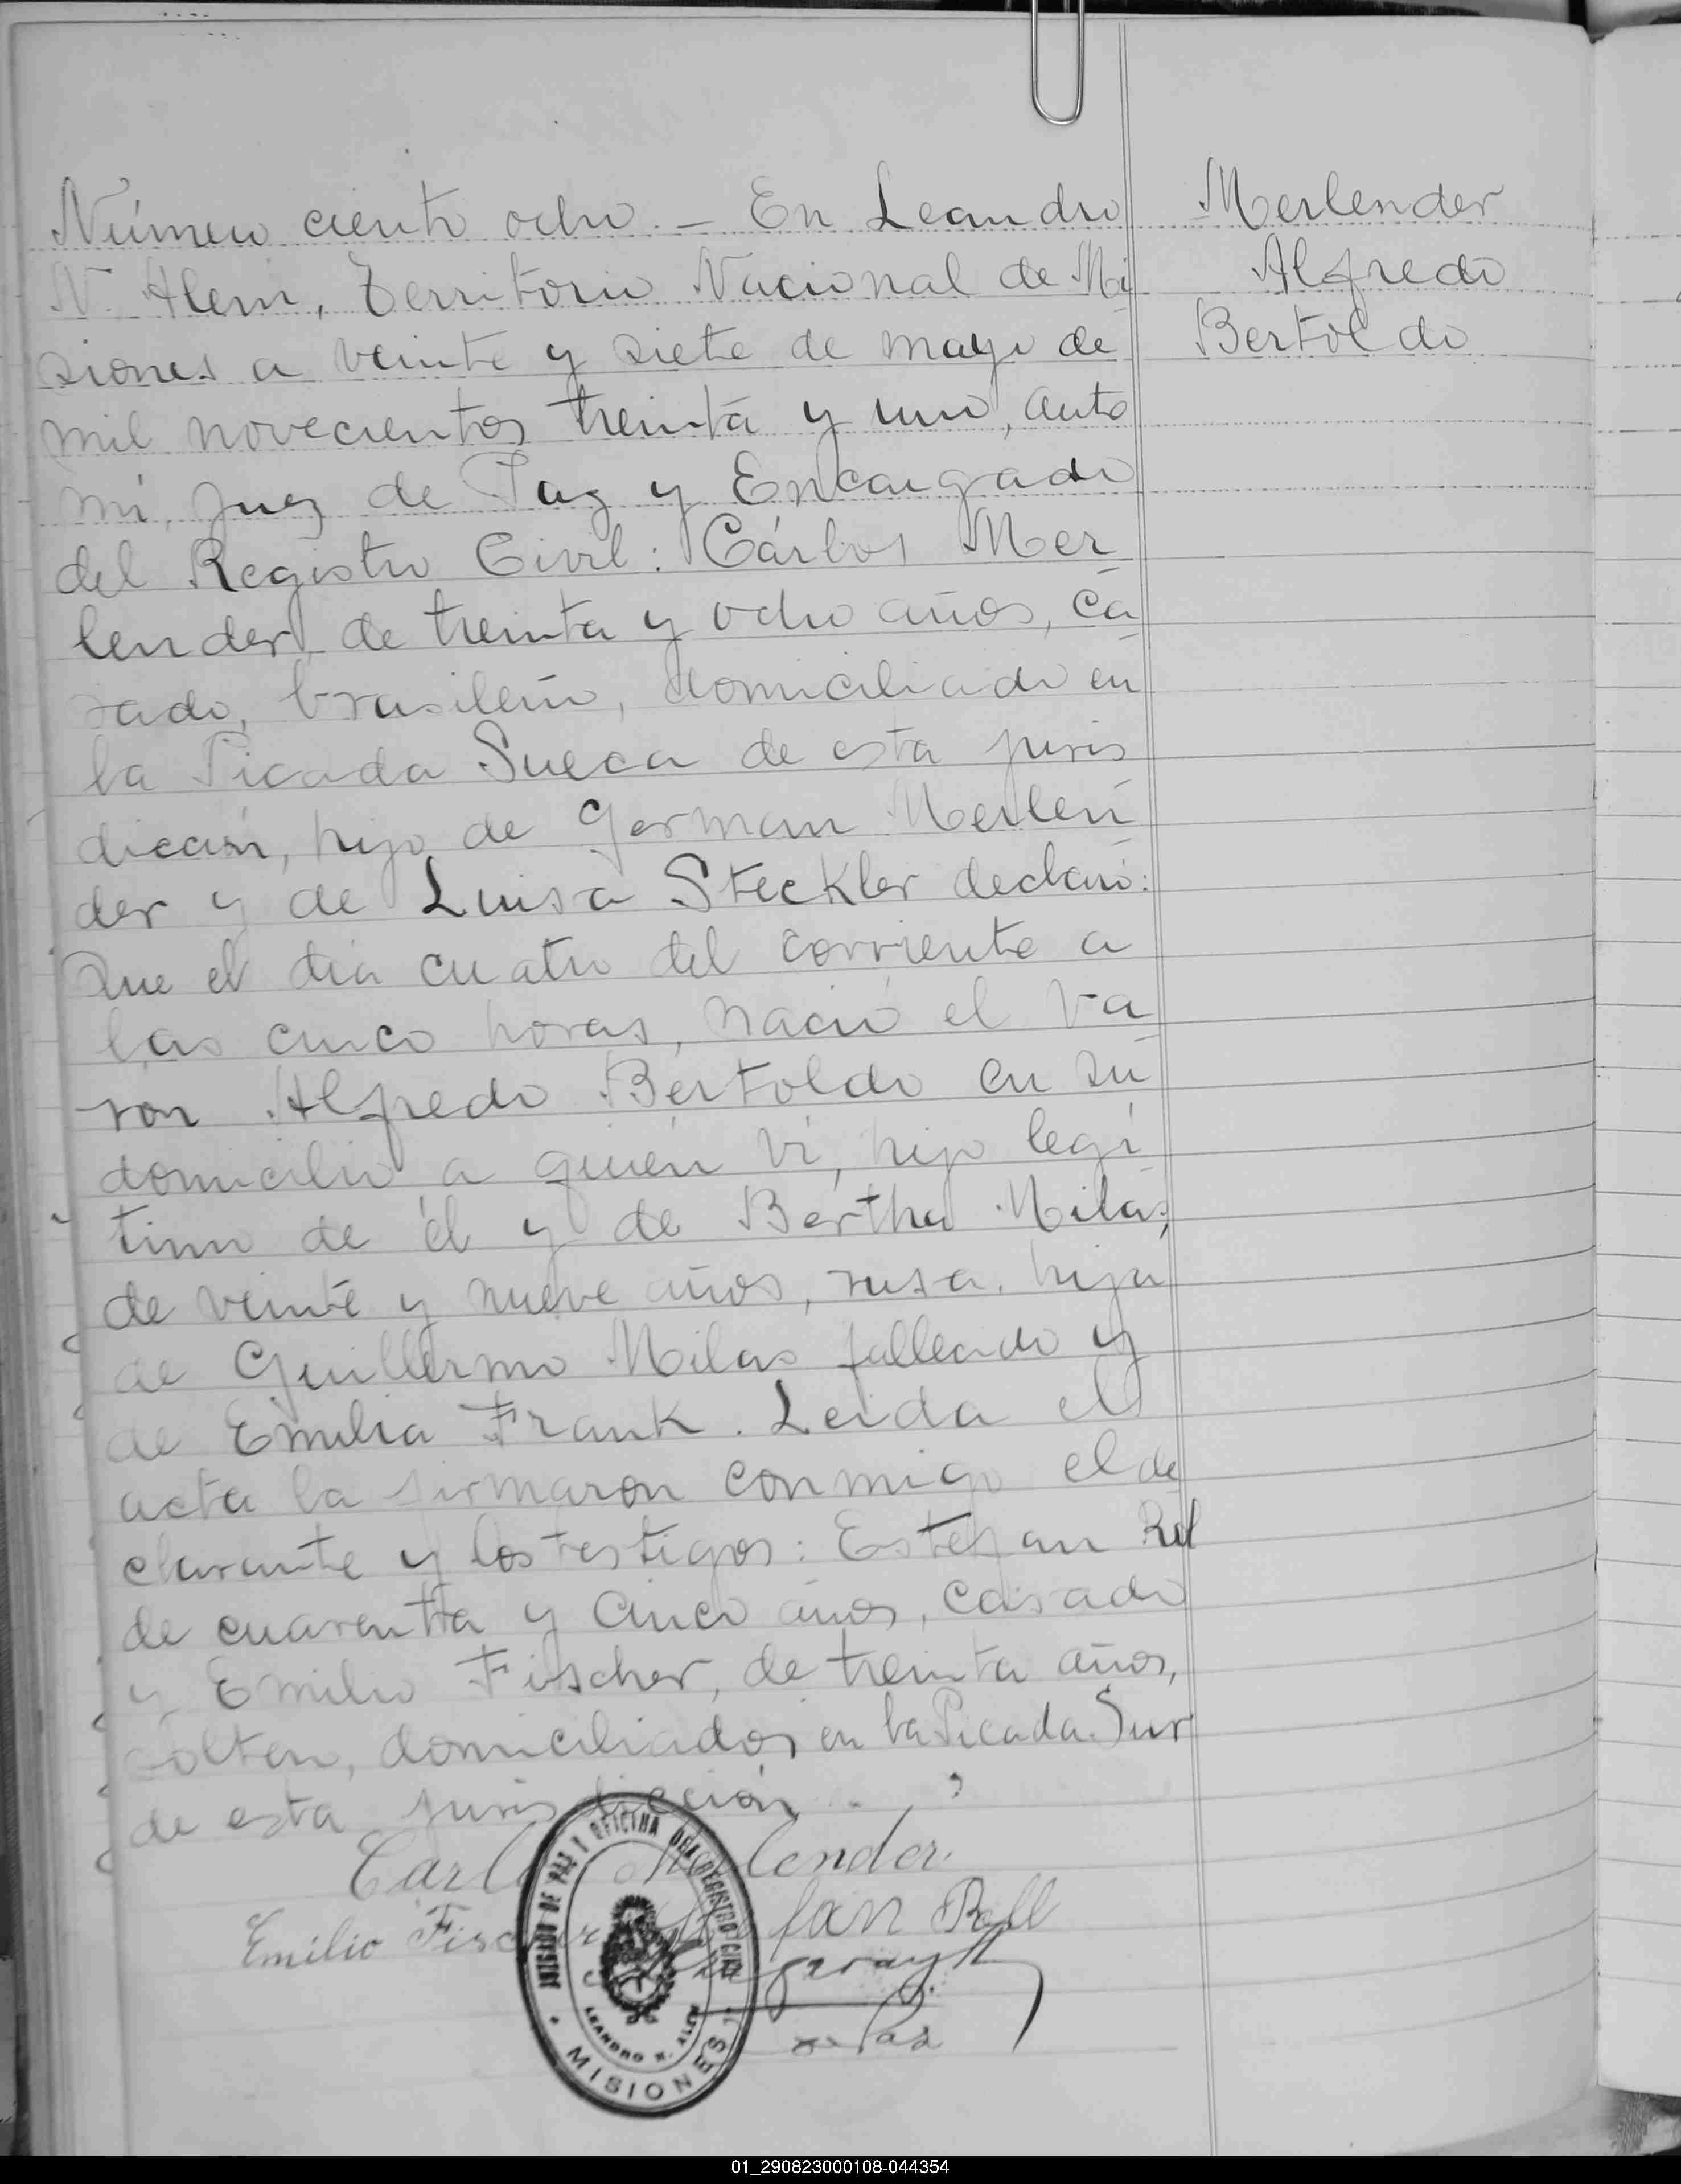 Número ciento ocho. - En Leandro
N. Alem, Territorio Nacional de Mi
siones a veinte y siete de mayo de
mil novecientos treinta y uno, ante
mi, Juez de Paz y Encargado
del Registro Civil: Cárlos Mer
lender, de treinta y ocho años, ca
sado, brasileño, domiciliado en
la Picada Sueca de esta juris
dicción, hijo de German Merlen
der y de Luisa Steckler declaró:
Que el dia cuatro del corriente a
las cinco horas, nació el va
ron Alfredo Bertoldo en su
domicilio a quién ví, hijo legi
timo de él y de Bertha Milas,
de veinte y nueve años, rusa, hija
de Guillermo Milas fallecido y
de Emilia Frank. Leida el
acta la firmaron conmigo el de
clarante y los testigos: Estefan
de cuarenta y cinco años, casado
y Emilio Fischer, de treinta años,
soltero, domiciliados en la Picada Sur
de esta jurisdicción.
Merlender
Alfredo
Bertoldo
Carlos Merlender.
Emilio Fischer Stefan Roll
JUZGADO DE PAZ Y OFICINA DEL REGISTRO CIVIL
LEANDRO N. ALEM
MISIONES
de Paz
01_290823000108-044354